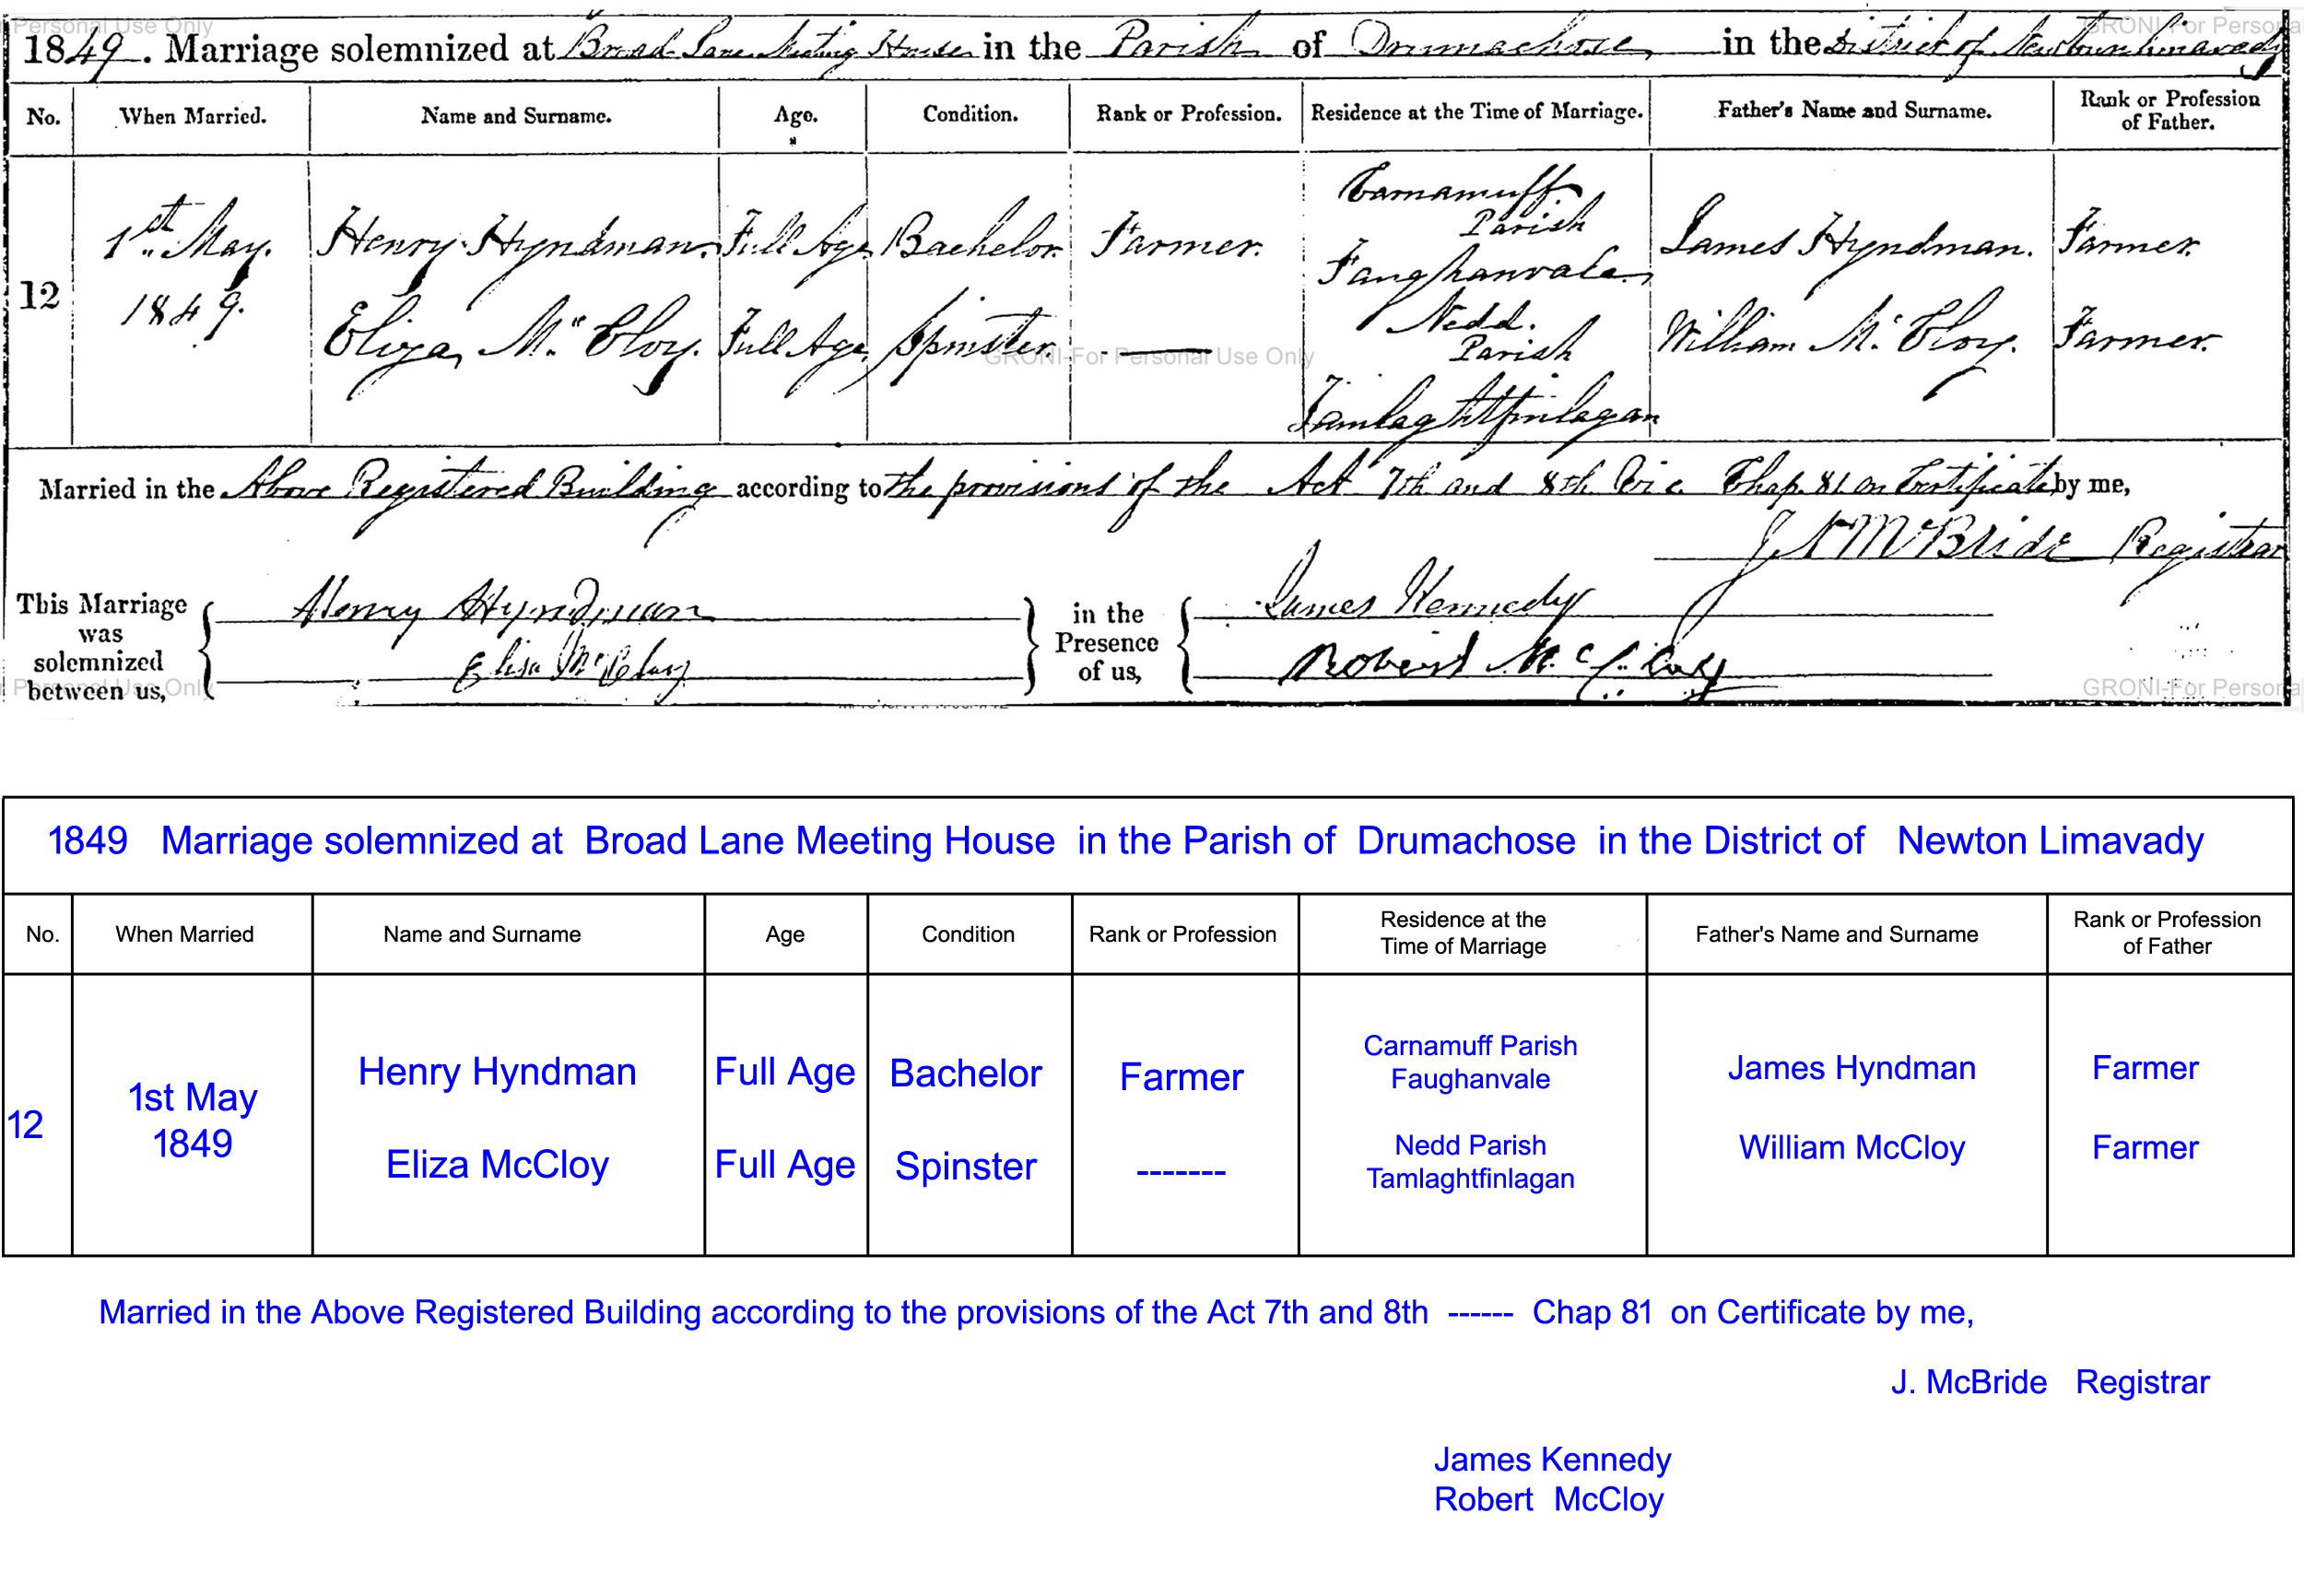 GRONI-For Personal Use Only
1849. Marriage solemnized at Broad Lane Meeting House in the Parish of Drumachose in the District of Newtownlimavady
No. When Married. Name and Surname. Age. Condition. Rank or Profession. Residence at the Time of Marriage. Father's Name and Surname. Rank or Profession of Father.
12 1st May. 1849.
Henry Hyndman. Full Age Bachelor. Farmer. Carnamuff Parish Faughanvale James Hyndman. Farmer.
Eliza McCloy. Full Age Spinster. — Nedd. Parish Tamlaghtfinlagan William McCloy. Farmer.
GRONI-For Personal Use Only
Married in the Above Registered Building according to the provisions of the Act 7th and 8th Vic. Chap. 81 on Certificate by me,
McBride Registrar
This Marriage was solemnized between us, Henry Hyndman Eliza McCloy in the Presence of us, James Kennedy Robert McCloy
Personal Use Only
GRONI-For Persona
1849 Marriage solemnized at Broad Lane Meeting House in the Parish of Drumachose in the District of Newton Limavady
No. When Married Name and Surname Age Condition Rank or Profession Residence at the Time of Marriage Father's Name and Surname Rank or Profession of Father
12 1st May 1849
Henry Hyndman Full Age Bachelor Farmer Carnamuff Parish Faughanvale James Hyndman Farmer
Eliza McCloy Full Age Spinster ------- Nedd Parish Tamlaghtfinlagan William McCloy Farmer
Married in the Above Registered Building according to the provisions of the Act 7th and 8th ------ Chap 81 on Certificate by me,
J. McBride Registrar
James Kennedy
Robert McCloy